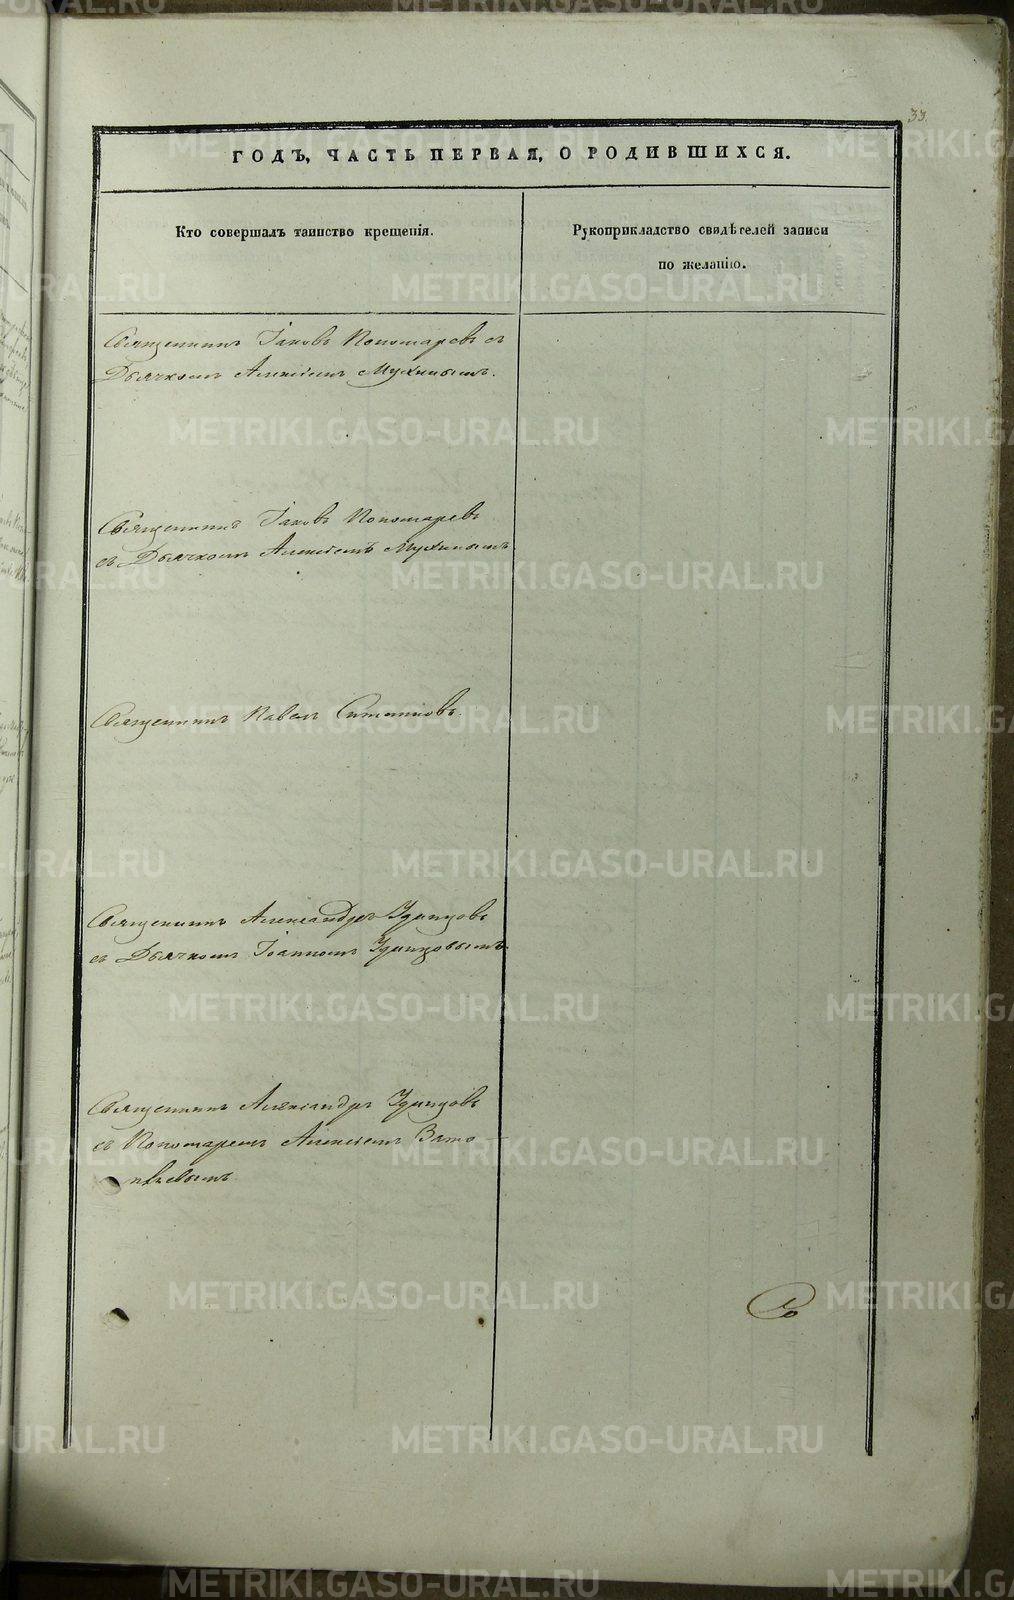 33.
ГОДЪ, ЧАСТЬ ПЕРВАЯ, О РОДИВШИХСЯ.
Кто совершалъ таинство крещенія.
Рукоприкладство свидѣтелей записи
по желанію.
Священникъ Іаковъ Пономаревъ съ
Дьячкомъ Алексіемъ Мухинымъ.
Священникъ Іаковъ Пономаревъ
съ Дьячкомъ Алексіемъ Мухинымъ
Священникъ Павелъ Ситниковъ.
Священникъ Александръ Удинцовъ
съ Дьячкомъ Іоанномъ Удинцовымъ
Священникъ Александръ Удинцовъ
съ Пономаремъ Алексіемъ
METRIKI.GASO-URAL.RU